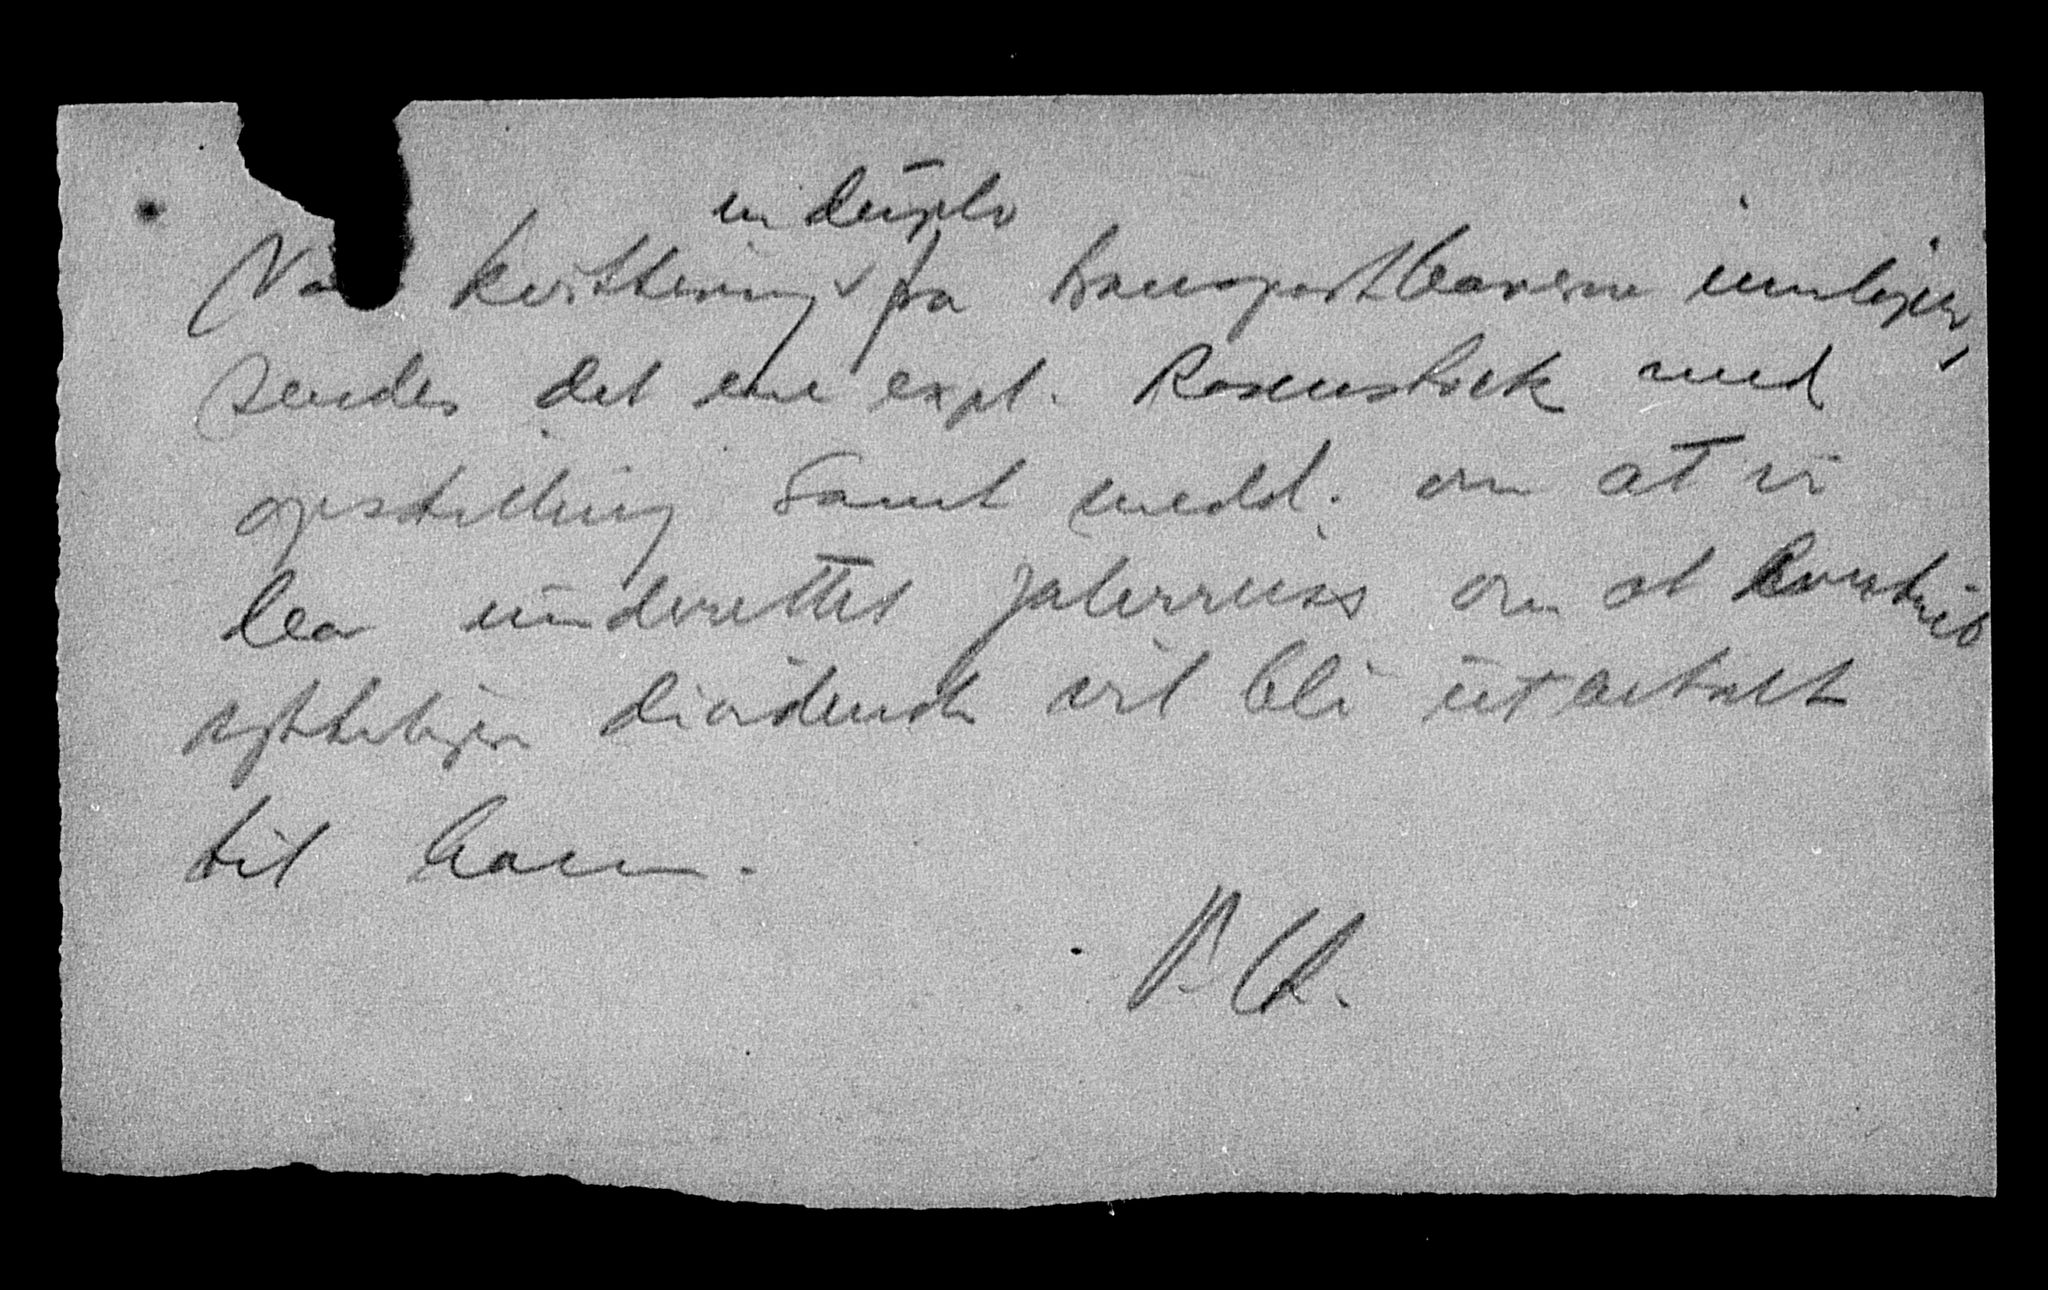 in duplo
Når kvittering fra transporthaverne innløper,
sendes det ene expl. Rosenstock med
opstilling samt medd. om at vi
har underrettet om at
dividende vil bli utbetalt
til ham.